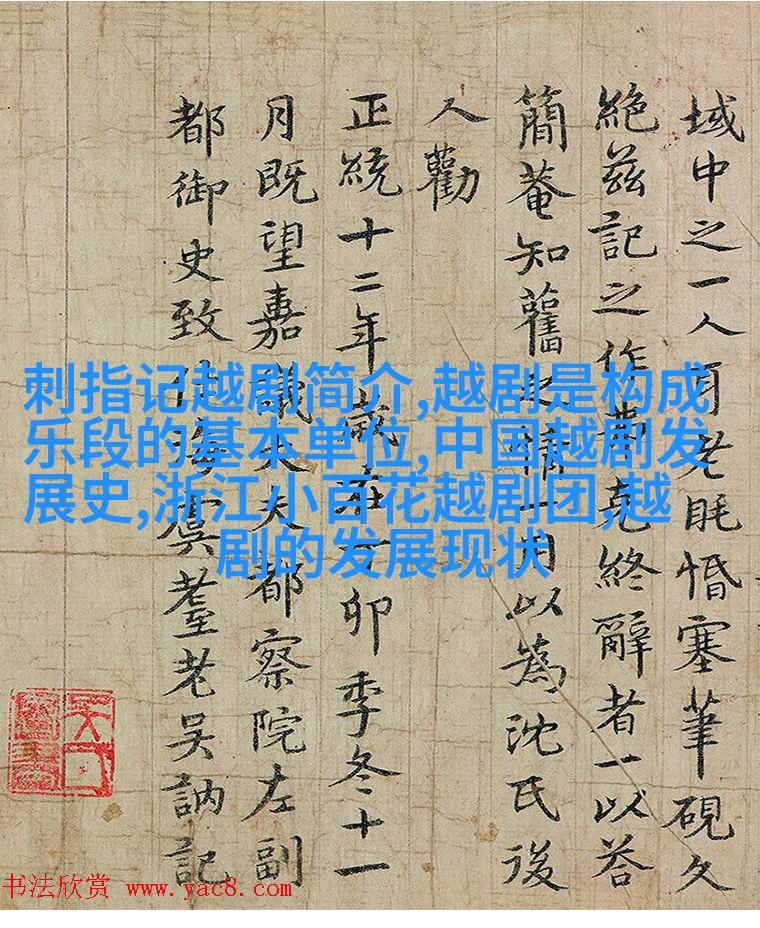 域中之一人耳老眊惛塞筆硯久
絶茲記之作弗克終辭者一以答
簡菴知舊之情一用以為沈氏後
人勸
正統十二年歲在丁卯季冬十一
月既望嘉議大夫都察院左副
都御史致仕海虞耋老吳訥記
刺指记越剧简介,越剧是构成
乐段的基本单位,中国越剧发
展史,浙江小百花越剧团,越
剧的发展现状
书法欣赏 www.yac8.com